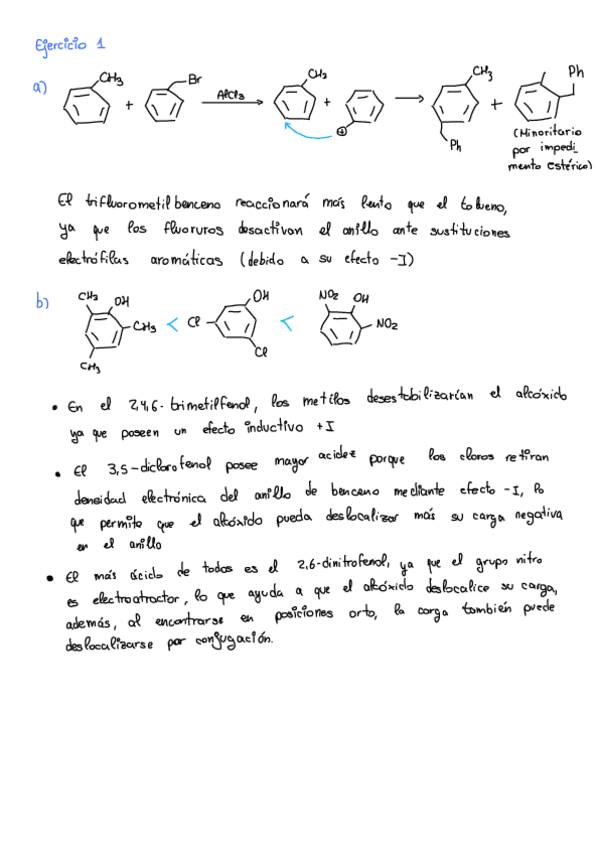 Ejercicio 1
a)
CH3 + Br AlCl3 CH3 + ⊕ CH3 Ph + Ph
(Minoritario
por impedi_
mento estérico)
El trifluorometilbenceno reaccionará más lento que el tolueno,
ya que los fluoruros desactivan el anillo ante sustituciones
electrófilas aromáticas (debido a su efecto -I)
b)
CH3 OH CH3 CH3 < Cl OH Cl < NO2 OH NO2
• En el 2,4,6-trimetilfenol, los metilos desestabilizarían el alcóxido
ya que poseen un efecto inductivo +I
• El 3,5-diclorofenol posee mayor acidez porque los cloros retiran
densidad electrónica del anillo de benceno mediante efecto -I, lo
que permite que el alcóxido pueda deslocalizar más su carga negativa
en el anillo
• El más ácido de todos es el 2,6-dinitrofenol, ya que el grupo nitro
es electroatractor, lo que ayuda a que el alcóxido deslocalice su carga,
además, al encontrarse en posiciones orto, la carga también puede
deslocalizarse por conjugación.